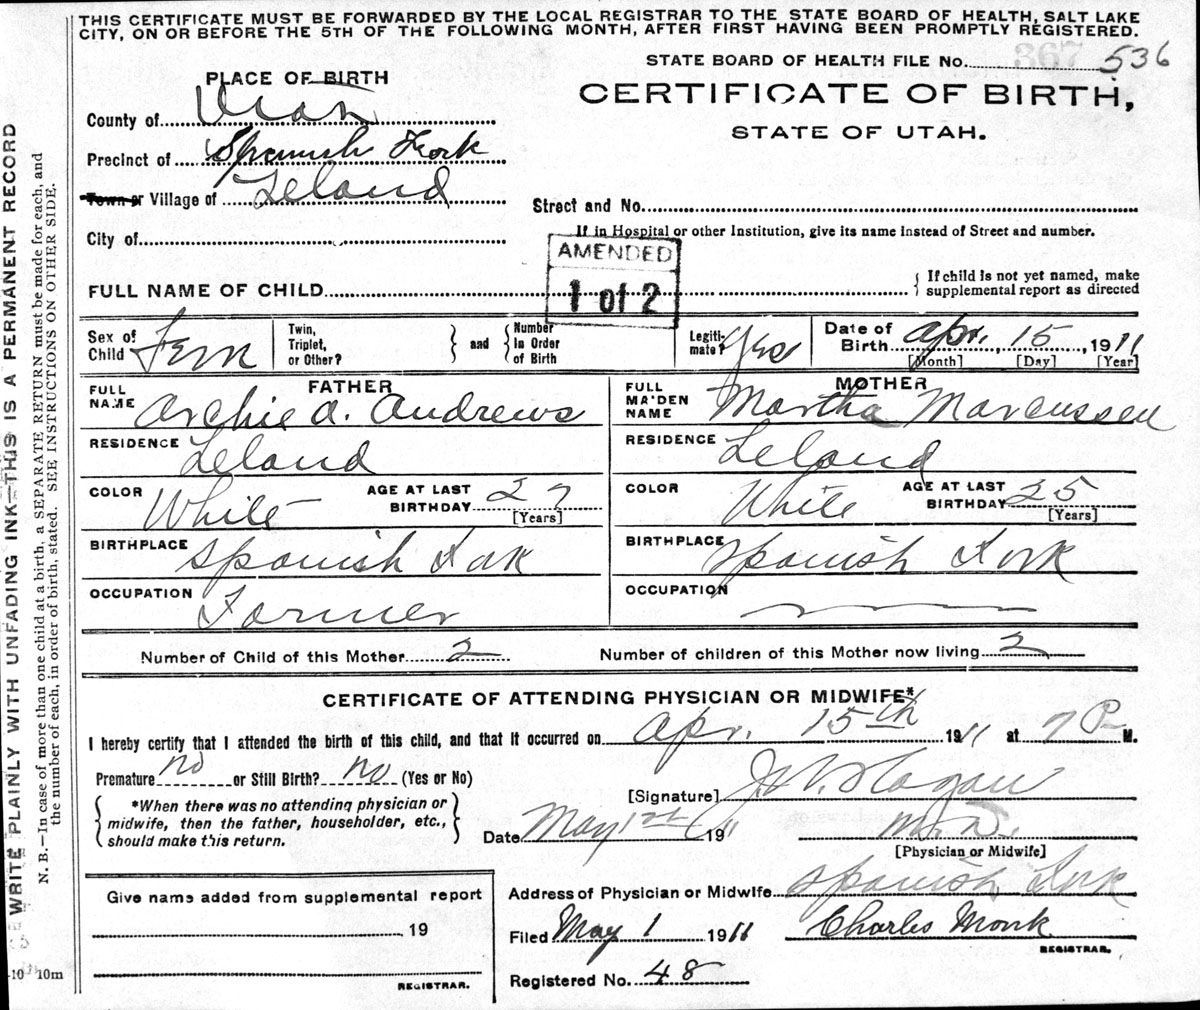 THIS CERTIFICATE MUST BE FORWARDED BY THE LOCAL REGISTRAR TO THE STATE BOARD OF HEALTH, SALT LAKE
CITY, ON OR BEFORE THE 5TH OF THE FOLLOWING MONTH, AFTER FIRST HAVING BEEN PROMPTLY REGISTERED.
STATE BOARD OF HEALTH FILE No. 536
367
PLACE OF BIRTH
CERTIFICATE OF BIRTH,
STATE OF UTAH.
County of Utah
Precinct of Spanish Fork
Town or Village of Leland
Street and No.
City of
If in Hospital or other Institution, give its name instead of Street and number.
AMENDED
1 of 2
FULL NAME OF CHILD
{ If child is not yet named, make
supplemental report as directed
Sex of Child Fem
Twin, Triplet, or Other? } and { Number In Order of Birth
Legitimate? Yes
Date of Birth Apr. 15, 1911
[Month] [Day] [Year]
FATHER
FULL NAME Archie A. Andrews
RESIDENCE Leland
COLOR White AGE AT LAST BIRTHDAY 27
[Years]
BIRTHPLACE Spanish Fork
OCCUPATION Farmer
MOTHER
FULL MAIDEN NAME Martha Marcussen
RESIDENCE Leland
COLOR White AGE AT LAST BIRTHDAY 25
[Years]
BIRTHPLACE Spanish Fork
OCCUPATION
Number of Child of this Mother 2 Number of children of this Mother now living 2
CERTIFICATE OF ATTENDING PHYSICIAN OR MIDWIFE*
I hereby certify that I attended the birth of this child, and that it occurred on Apr. 15th 1911 at 7 P M.
Premature no or Still Birth? no (Yes or No)
[Signature]
{ *When there was no attending physician or
midwife, then the father, householder, etc.,
should make this return. }
Date May 1st 1911 M.D.
[Physician or Midwife]
Address of Physician or Midwife Spanish Fork
Give name added from supplemental report
19
REGISTRAR.
Filed May 1 1911 Charles Monk
REGISTRAR.
Registered No. 48
WRITE PLAINLY WITH UNFADING INK—THIS IS A PERMANENT RECORD
N. B.—In case of more than one child at a birth, a SEPARATE RETURN must be made for each, and
the number of each, in order of birth, stated. SEE INSTRUCTIONS ON OTHER SIDE.
10m